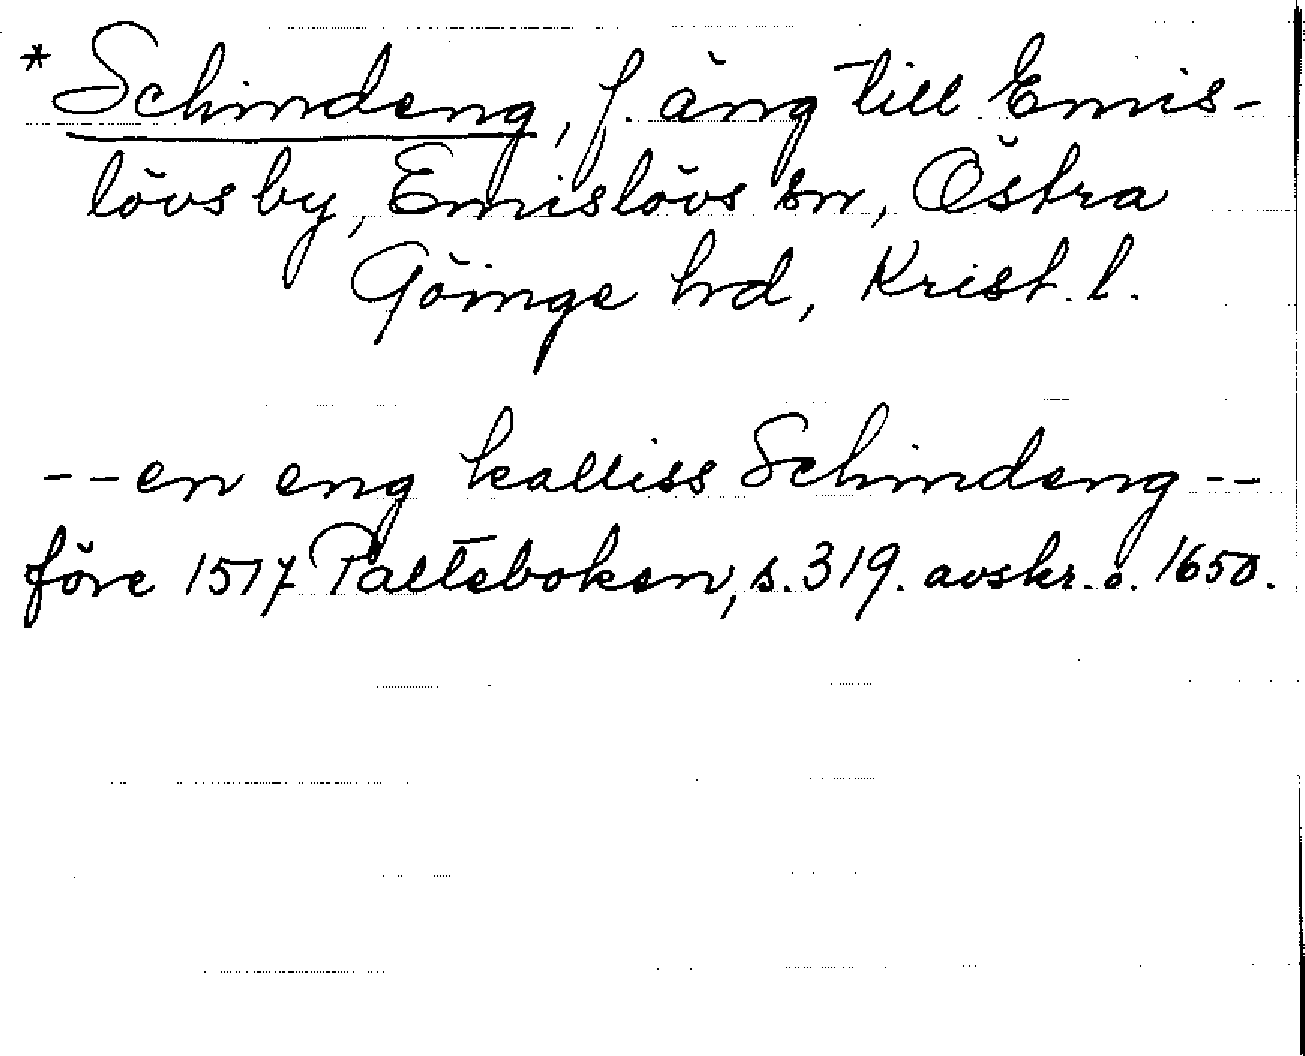 * Schindeng, f. äng till Emis-
lövs by, Emislövs sn, Östra
Göinge hrd, Krist. l.
--en eng kalliss Schindeng--
före 1517 Palteboken, s. 319. avskr. o. 1650.